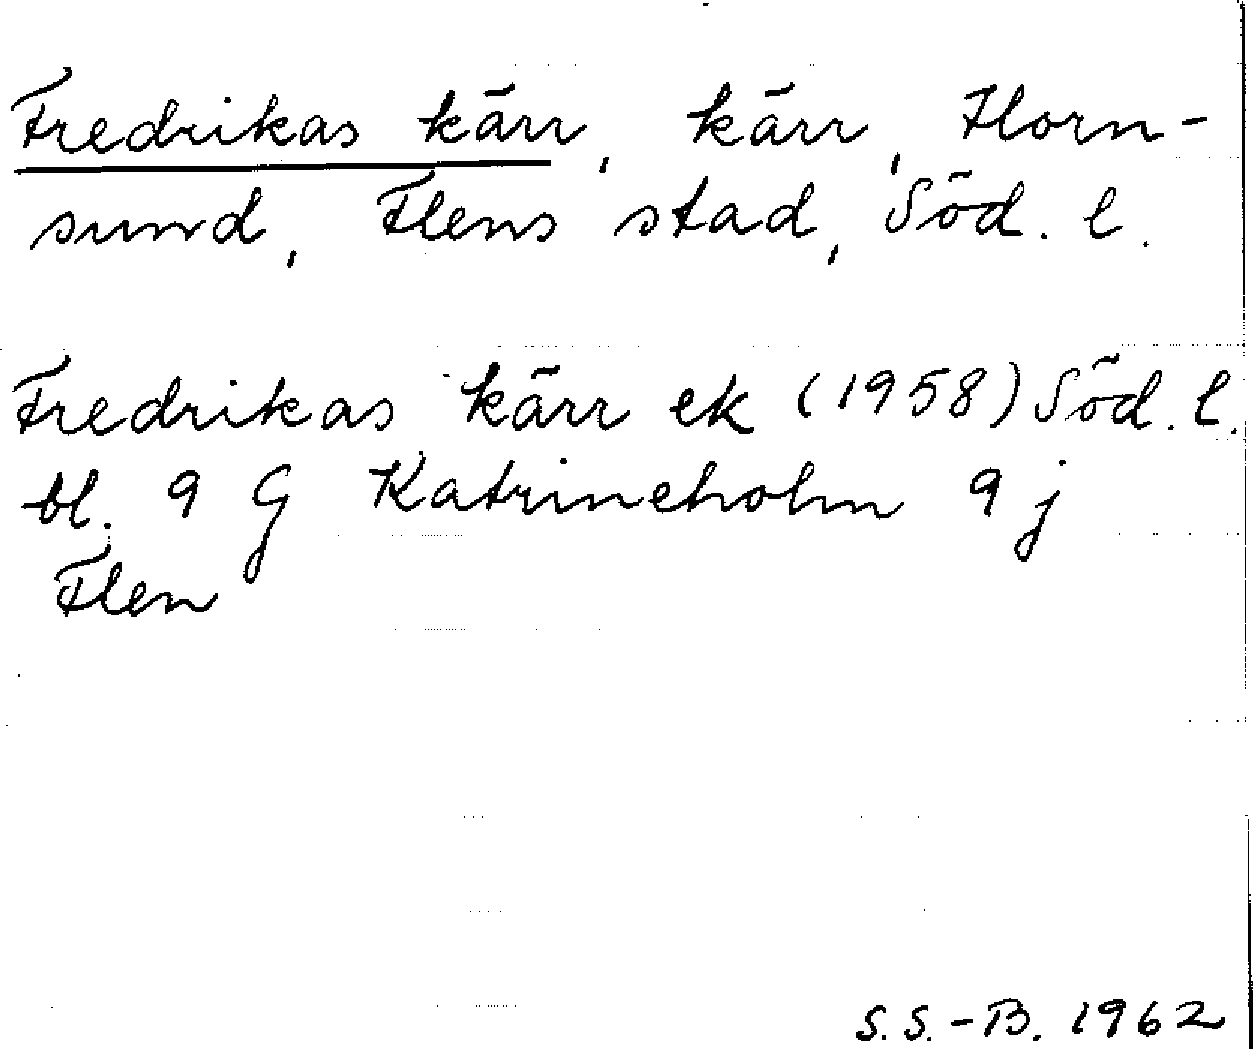 Fredrikas kärr, kärr, Horn-
sund, Flens stad, Söd. l.
Fredrikas kärr ek (1958) Söd. l.
bl. 9 G Katrineholm 9 j
Flen
S.S.-B. 1962